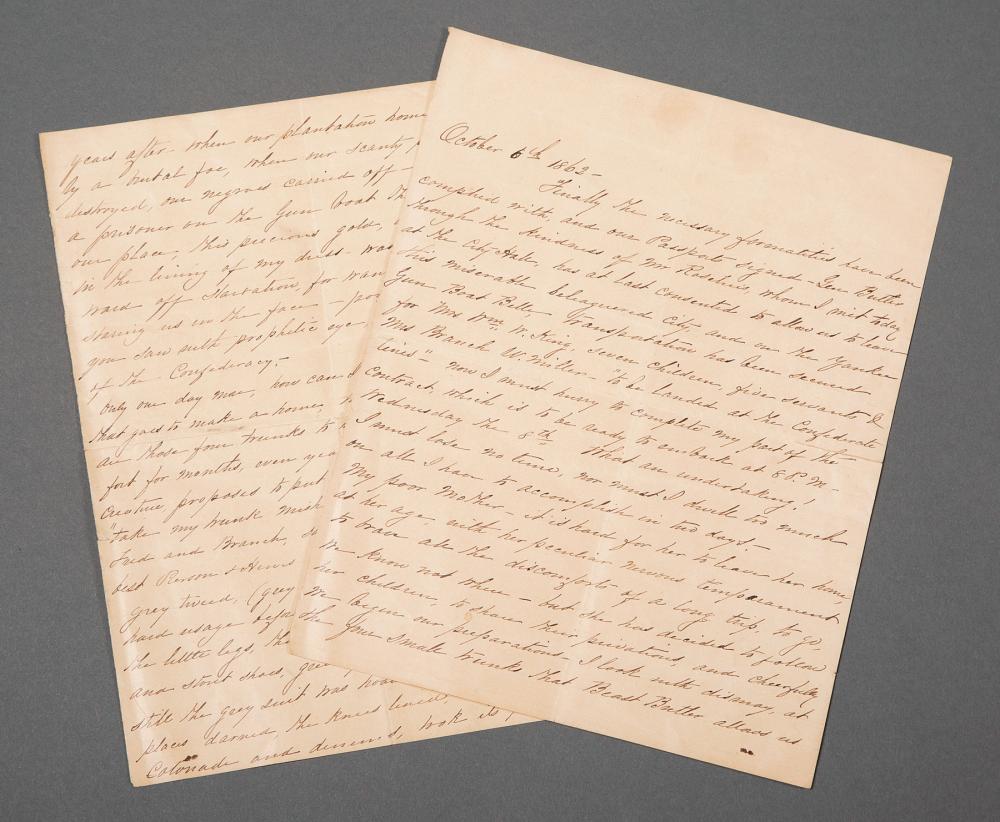 October 6th 1862-
Finally the necessary formalities have been
complied with and our Passports signed - Gen Butler
through the kindness of Mr Roselius, whom I met today
at the City Hall, has at last consented to allow us to leave
this miserable beleaguered City, and on the Yankee
Gun Boat Belle Transportation has been secured
for Mrs Wm. W. King, seven children, five servants, &
Mrs Branch W. Miller - "to be landed at the Confederate
lines" - now I must hurry to complete my part of the
contract, which is to be ready to embark at 8 P. M -
Wednesday the 8th. What an undertaking.
I must lose no time, nor must I dwell too much
on all I have to accomplish in two days! -
My poor Mother - it is hard for her to leave her home,
at her age, with her peculiar nervous temperament
to brave all the discomforts of a long trip, to go,
we know not where - but she has decided to follow
her children, to share their privations, and cheerfully
we begin our preparations. I look with dismay, at
the four small trunks that Beast Butler allows us
years after when our plantation home
by a brutal foe, when our scanty
destroyed, our negroes carried off -
a prisoner on the Gun boat
our place, this precious gold,
in the lining of my dress was
ward off starvation, for
staring us in the face -
you saw with prophetic eye
of the Confederacy. -
Only one day more, how can I
that goes to make a home,
are those four trunks to
fort for months, even
creature proposes to put
"take my trunk
Fred and Branch, so
best Pierson & Hews
grey tweed, (grey
hard usage before
the little legs, the
and stout shoes,
still the grey suit was
places darned, the knees lined,
Cotonade and denims, took its